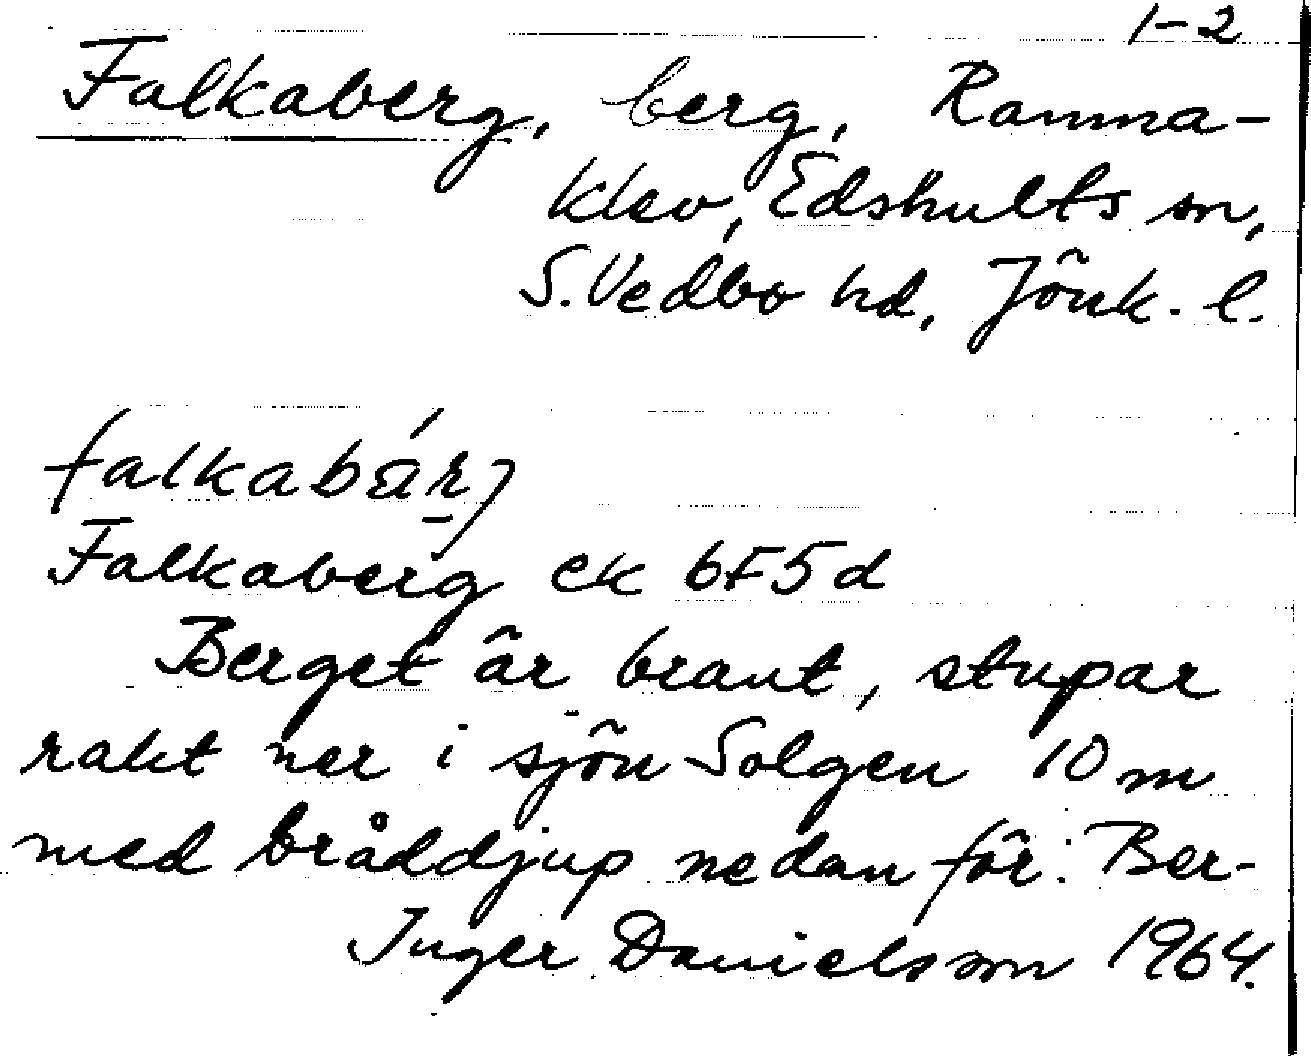 1-2
Falkaberg, berg, Ramma-
klev, Edshults sn,
S. Vedbo hd, Jönk. l.
falkabár̠j
Falkaberg ek 6F5d
Berget är brant, stupar
rakt ner i sjön Solgen 10 m
med bråddjup nedanför. Ber-
Inger Danielsson 1964.